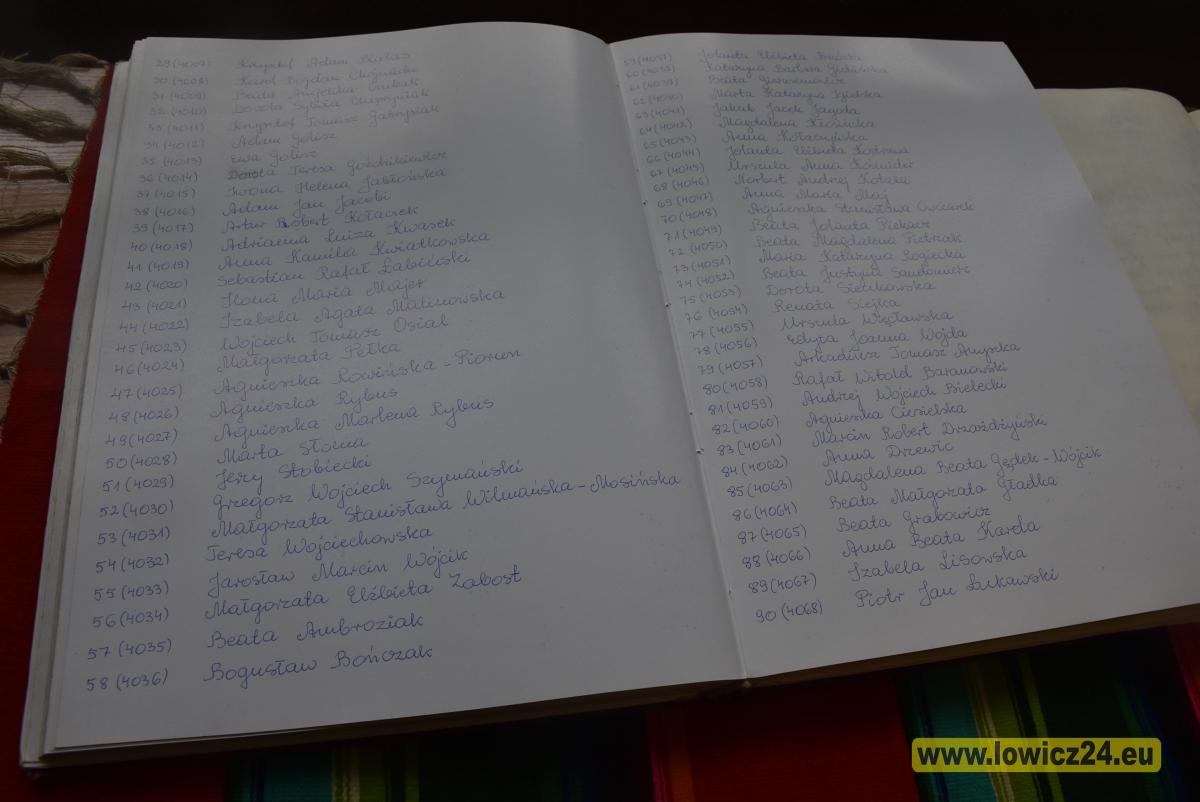 29 (4007) Krzysztof Adam Białas
30 (4008) Karol Bogdan
31 (4009) Beata Angelika Czubak
32 (4010) Dorota Sylwia
33 (4011) Krzysztof Tomasz Gabryniak
34 (4012) Adam Golisz
35 (4013) Ewa Golisz
36 (4014) Dorota Teresa Goździkiewicz
37 (4015) Iwona Helena Jabłońska
38 (4016) Adam Jan Jacobi
39 (4017) Artur Robert Kołaczek
40 (4018) Adrianna Luiza Kwasek
41 (4019) Anna Kamila Kwiatkowska
42 (4020) Sebastian Rafał Łabęcki
43 (4021) Ilona Maria Majer
44 (4022) Izabela Agata Malinowska
45 (4023) Wojciech Tomasz Osial
46 (4024) Małgorzata Pełka
47 (4025) Agnieszka Rowińska-Piorun
48 (4026) Agnieszka Rybus
49 (4027) Agnieszka Marlena Rybus
50 (4028) Marta Słoma
51 (4029) Jerzy Stobiecki
52 (4030) Grzegorz Wojciech Szymański
53 (4031) Małgorzata Stanisława Wilmańska-Mosińska
54 (4032) Teresa Wojciechowska
55 (4033) Jarosław Marcin Wójcik
56 (4034) Małgorzata Elżbieta Zabost
57 (4035) Beata Ambroziak
58 (4036) Bogusław Bończak
59 (4037) Jolanta Elżbieta
60 (4038) Katarzyna Barbara
61 (4039) Beata Gierasimowicz
62 (4040) Marta Katarzyna Igielska
63 (4041) Jakub Jacek Jagoda
64 (4042) Magdalena Klosińska
65 (4043) Anna Kołaczyńska
66 (4044) Jolanta Elżbieta Kostrzewa
67 (4045) Urszula Anna Kśmider
68 (4046) Norbert Andrzej Kotala
69 (4047) Anna Maria Maj
70 (4048) Agnieszka Stanisława Owczarek
71 (4049) Beata Jolanta Piekacz
72 (4050) Beata Magdalena Pietrzak
73 (4051) Maria Katarzyna Rogiecka
74 (4052) Beata Justyna Sandomierz
75 (4053) Dorota Sielikowska
76 (4054) Renata Slejka
77 (4055) Urszula Więsławska
78 (4056) Edyta Joanna Wojda
79 (4057) Arkadiusz Tomasz Anyszka
80 (4058) Rafał Witold Baranowski
81 (4059) Andrzej Wojciech Bielecki
82 (4060) Agnieszka Ciesielska
83 (4061) Marcin Robert Drzażdżyński
84 (4062) Anna Drzewic
85 (4063) Magdalena Beata Gędek-Wójcik
86 (4064) Beata Małgorzata Gładka
87 (4065) Beata Grabowicz
88 (4066) Anna Beata Karda
89 (4067) Izabela Lisowska
90 (4068) Piotr Jan Łukawski
www.lowicz24.eu